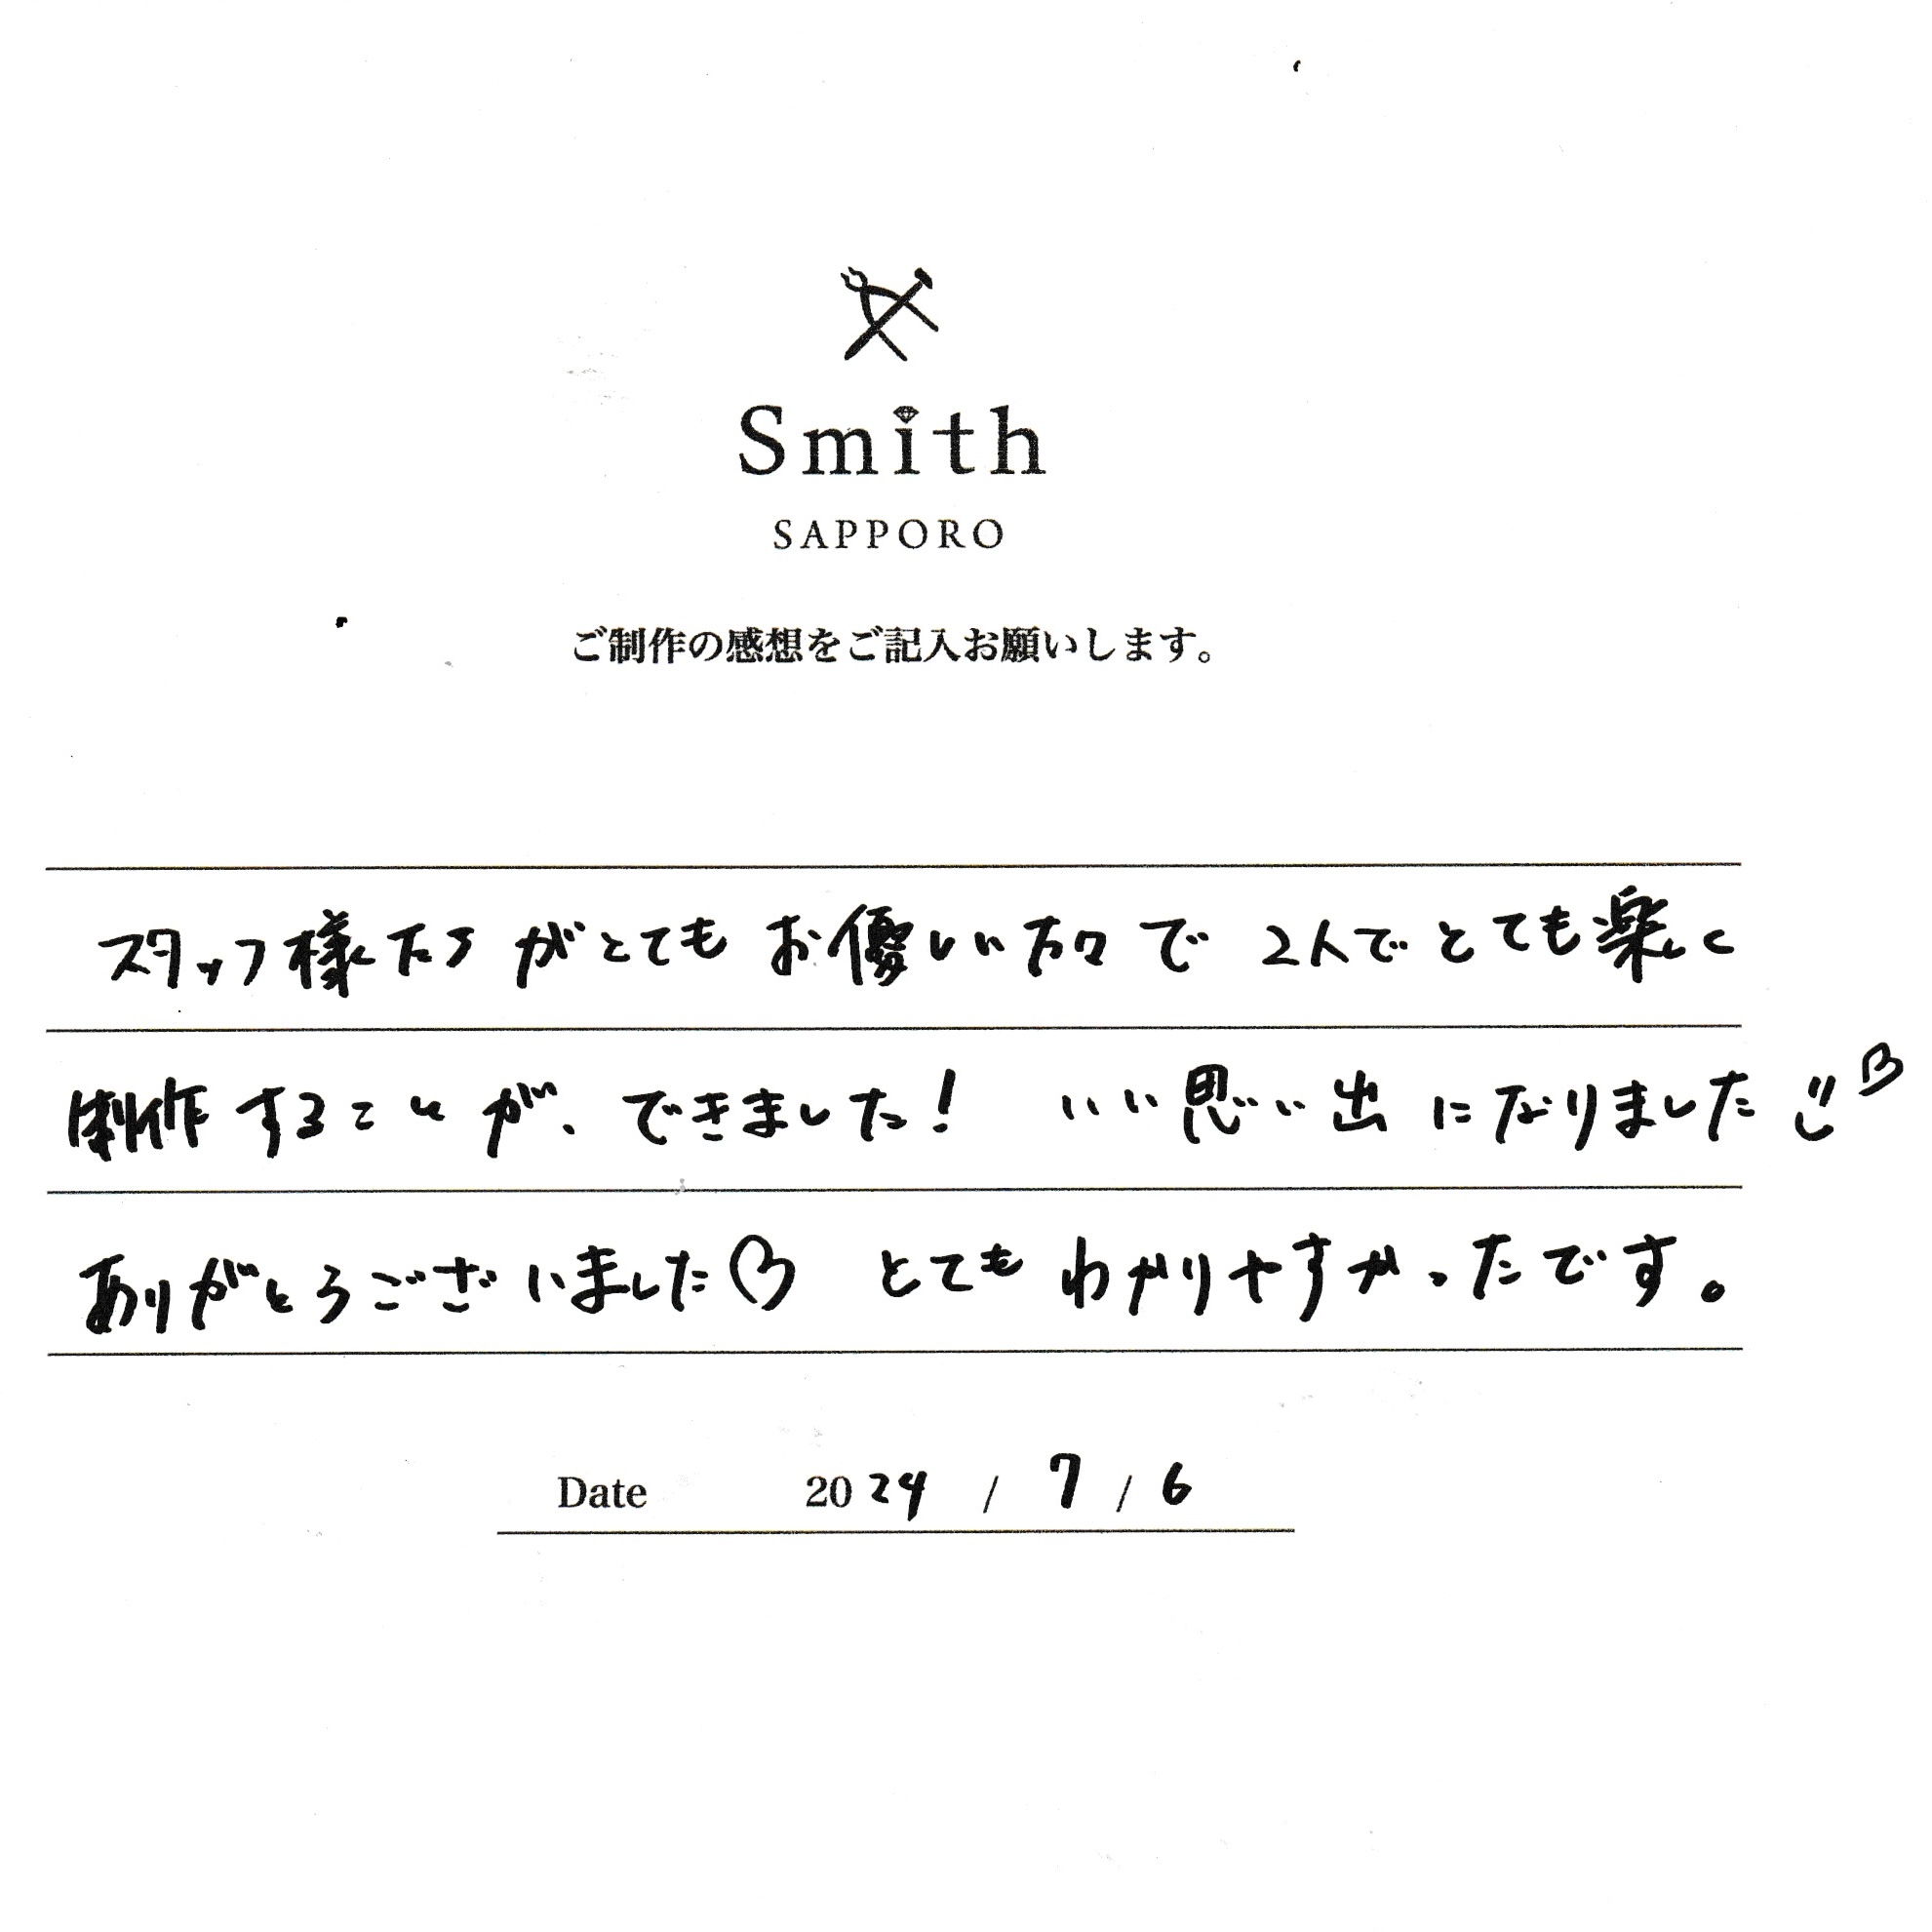 Smith
SAPPORO
ご制作の感想をご記入お願いします。
スタッフ様たちがとてもお優しい方々で2人でとても楽しく
制作することが、できました！ いい思い出になりました
ありがとうございました♡ とてもわかりやすかったです。
Date 2024 / 7 / 6